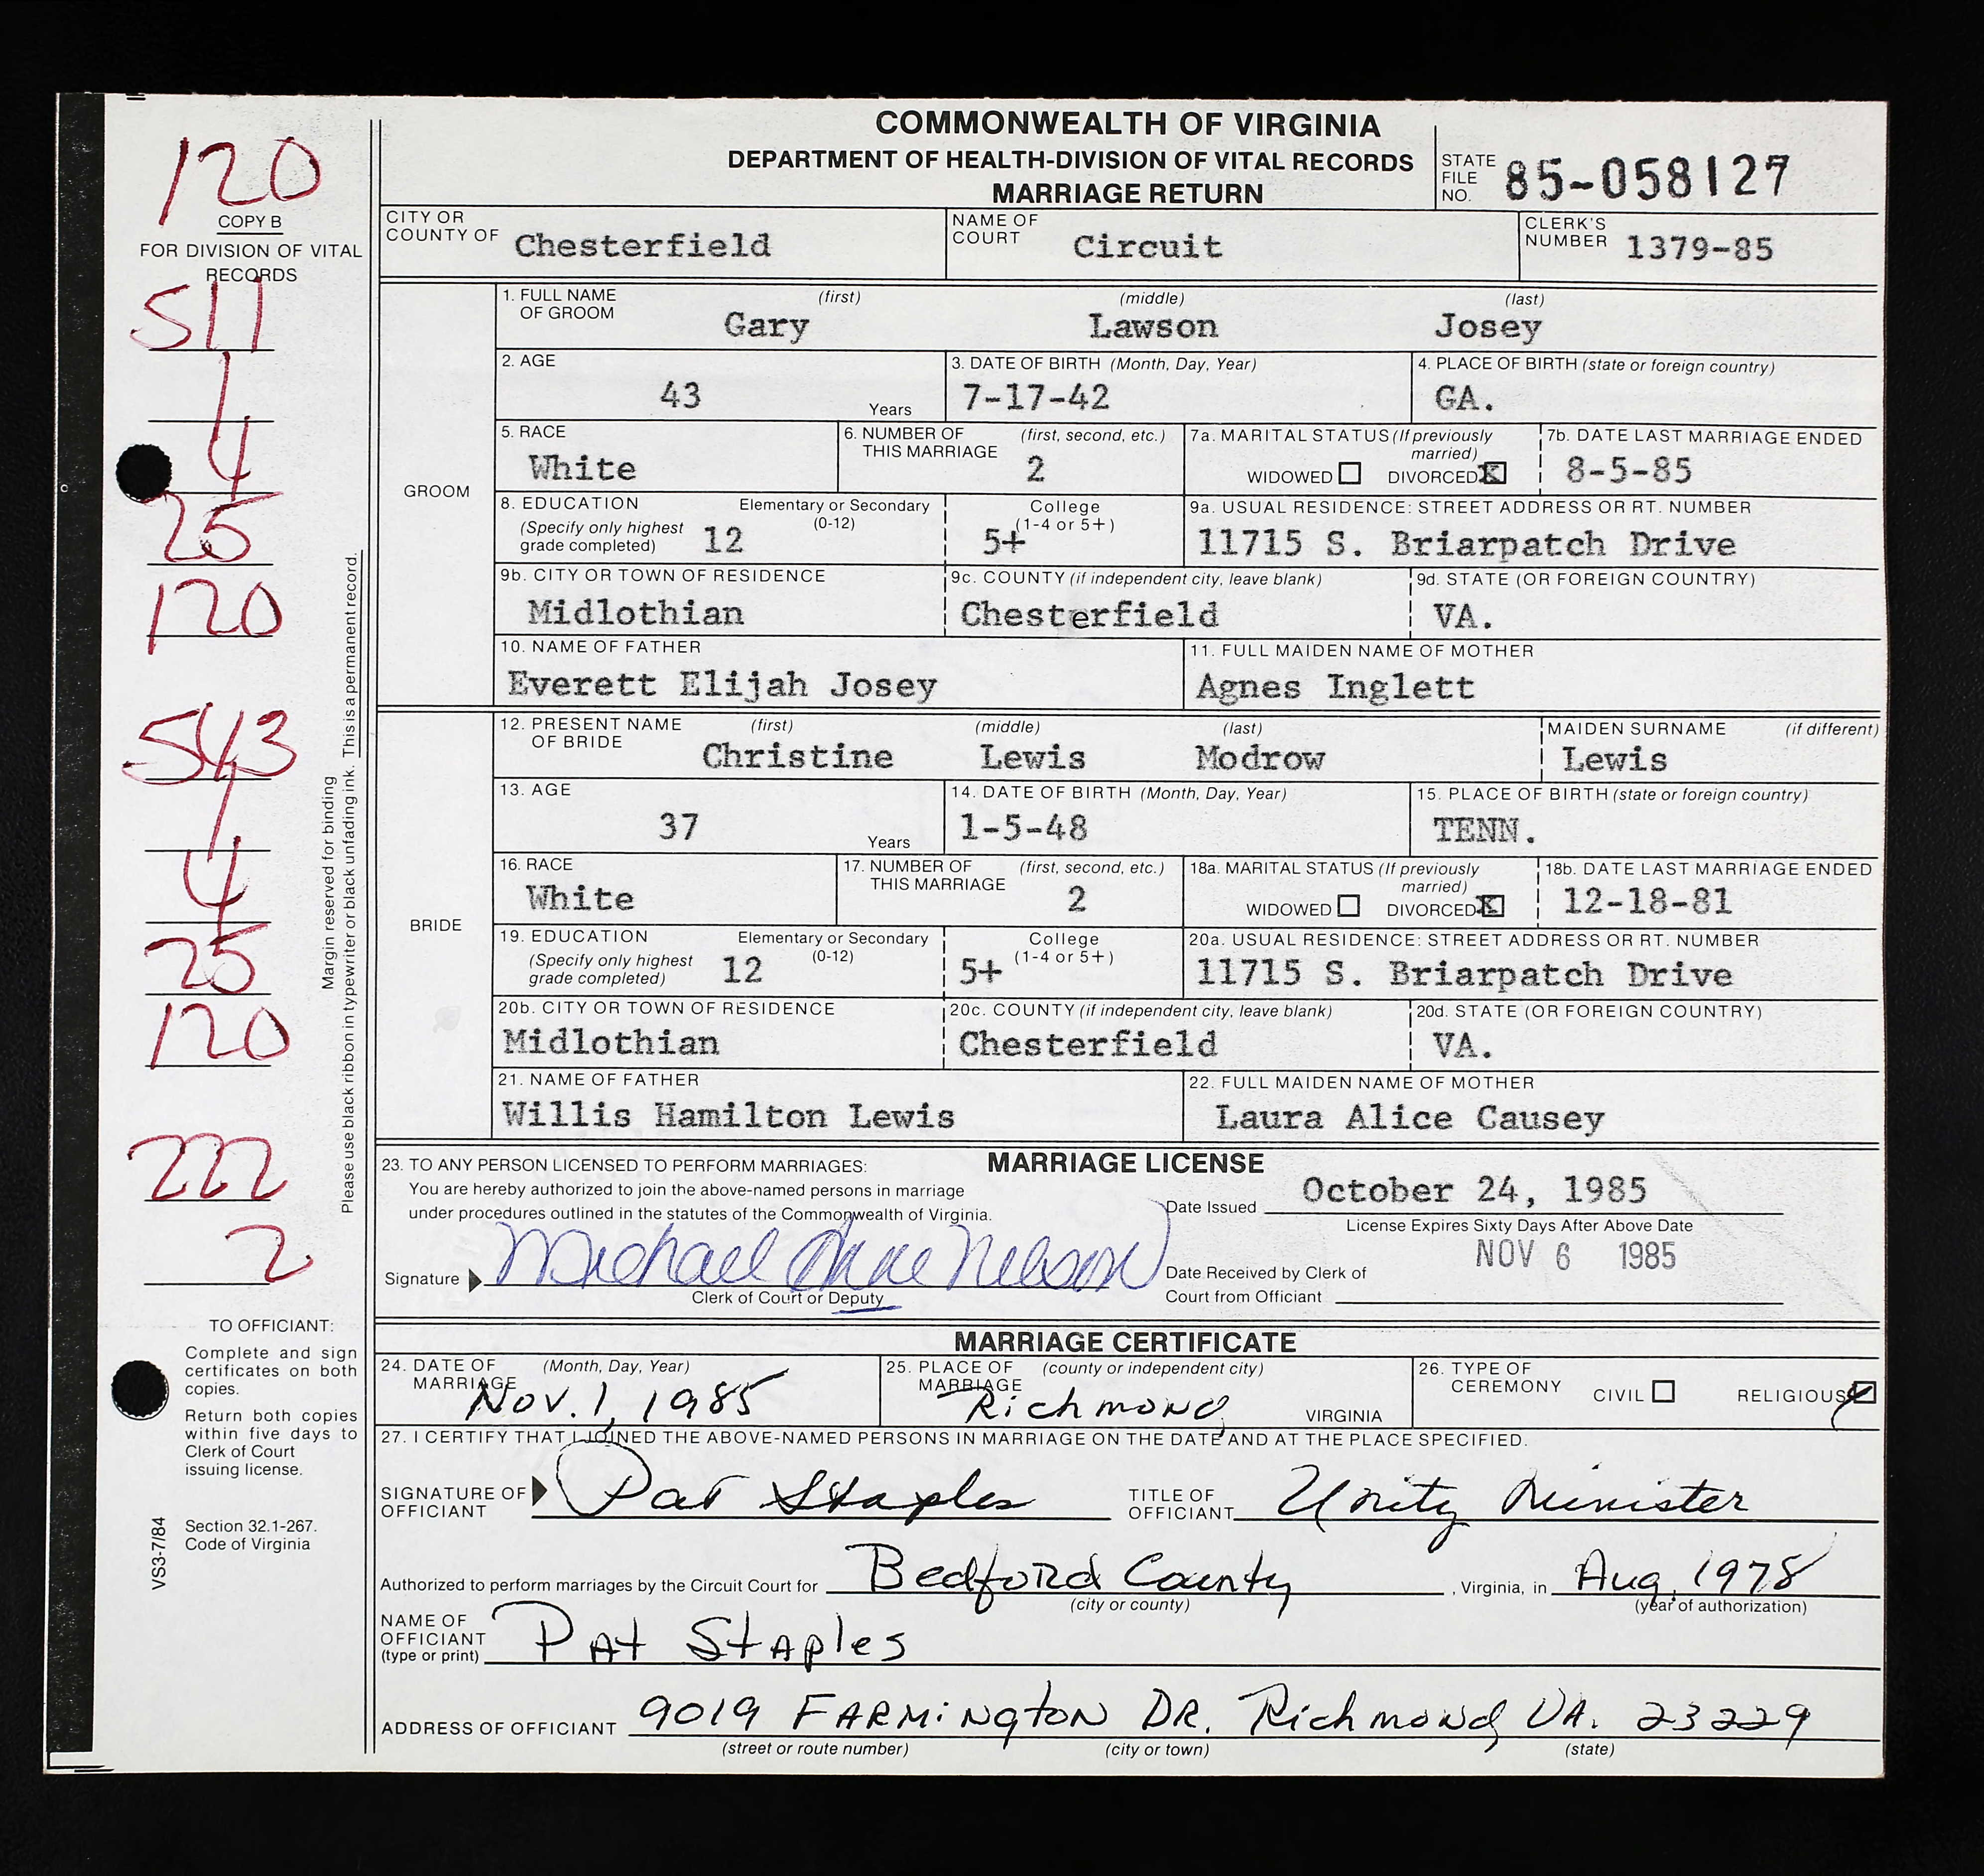 COMMONWEALTH OF VIRGINIA
DEPARTMENT OF HEALTH-DIVISION OF VITAL RECORDS
MARRIAGE RETURN
STATE FILE NO. 85-058127
120
COPY B
FOR DIVISION OF VITAL RECORDS
511
1
4
25
120
543
1
4
25
120
222
2
Margin reserved for binding
Please use black ribbon in typewriter or black unfading ink. This is a permanent record.
TO OFFICIANT:
Complete and sign
certificates on both
copies.
Return both copies
within five days to
Clerk of Court
issuing license.
Section 32.1-267.
Code of Virginia
VS3-7/84
CITY OR COUNTY OF Chesterfield
NAME OF COURT Circuit
CLERK'S NUMBER 1379-85
GROOM
1. FULL NAME OF GROOM (first) Gary (middle) Lawson (last) Josey
2. AGE 43 Years
3. DATE OF BIRTH (Month, Day, Year) 7-17-42
4. PLACE OF BIRTH (state or foreign country) GA.
5. RACE White
6. NUMBER OF THIS MARRIAGE (first, second, etc.) 2
7a. MARITAL STATUS (If previously married) WIDOWED DIVORCED X
7b. DATE LAST MARRIAGE ENDED 8-5-85
8. EDUCATION (Specify only highest grade completed) Elementary or Secondary (0-12) 12 College (1-4 or 5+) 5+
9a. USUAL RESIDENCE: STREET ADDRESS OR RT. NUMBER 11715 S. Briarpatch Drive
9b. CITY OR TOWN OF RESIDENCE Midlothian
9c. COUNTY (if independent city, leave blank) Chesterfield
9d. STATE (OR FOREIGN COUNTRY) VA.
10. NAME OF FATHER Everett Elijah Josey
11. FULL MAIDEN NAME OF MOTHER Agnes Inglett
BRIDE
12. PRESENT NAME OF BRIDE (first) Christine (middle) Lewis (last) Modrow
MAIDEN SURNAME (if different) Lewis
13. AGE 37 Years
14. DATE OF BIRTH (Month, Day, Year) 1-5-48
15. PLACE OF BIRTH (state or foreign country) TENN.
16. RACE White
17. NUMBER OF THIS MARRIAGE (first, second, etc.) 2
18a. MARITAL STATUS (If previously married) WIDOWED DIVORCED X
18b. DATE LAST MARRIAGE ENDED 12-18-81
19. EDUCATION (Specify only highest grade completed) Elementary or Secondary (0-12) 12 College (1-4 or 5+) 5+
20a. USUAL RESIDENCE: STREET ADDRESS OR RT. NUMBER 11715 S. Briarpatch Drive
20b. CITY OR TOWN OF RESIDENCE Midlothian
20c. COUNTY (if independent city, leave blank) Chesterfield
20d. STATE (OR FOREIGN COUNTRY) VA.
21. NAME OF FATHER Willis Hamilton Lewis
22. FULL MAIDEN NAME OF MOTHER Laura Alice Causey
MARRIAGE LICENSE
23. TO ANY PERSON LICENSED TO PERFORM MARRIAGES:
You are hereby authorized to join the above-named persons in marriage
under procedures outlined in the statutes of the Commonwealth of Virginia.
Date Issued October 24, 1985
License Expires Sixty Days After Above Date
Signature Michael Anne Nelson
Clerk of Court or Deputy
Date Received by Clerk of Court from Officiant NOV 6 1985
MARRIAGE CERTIFICATE
24. DATE OF MARRIAGE (Month, Day, Year) Nov. 1, 1985
25. PLACE OF MARRIAGE (county or independent city) Richmond, VIRGINIA
26. TYPE OF CEREMONY CIVIL RELIGIOUS
27. I CERTIFY THAT I JOINED THE ABOVE-NAMED PERSONS IN MARRIAGE ON THE DATE AND AT THE PLACE SPECIFIED.
SIGNATURE OF OFFICIANT Pat Staples
TITLE OF OFFICIANT Unity Minister
Authorized to perform marriages by the Circuit Court for Bedford County, Virginia, in Aug, 1978
(city or county) (year of authorization)
NAME OF OFFICIANT (type or print) Pat Staples
ADDRESS OF OFFICIANT 9019 Farmington Dr. Richmond, VA. 23229
(street or route number) (city or town) (state)